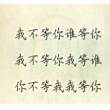 我不等你谁等你
我不等你难等你
你不等我我等你